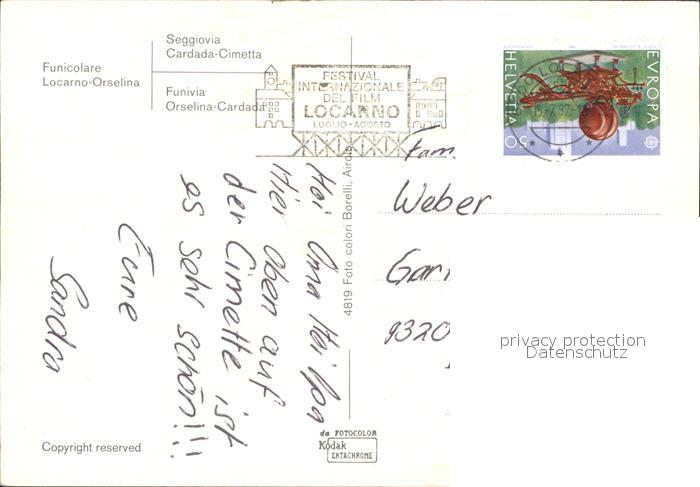 Seggiovia
Cardada-Cimetta
Funicolare
Locarno-Orselina
Funivia
Orselina-Cardada
FESTIVAL
INTERNAZIONALE
DEL FILM
LOCARNO
LUGLIO-AGOSTO
HELVETIA 50
EVROPA
Fam.
Weber
9320
privacy protection
Datenschutz
Hoi Oma Hoi Opa
Hier oben auf
der Cimette ist
es sehr schön!!!
Eure
Sandra
4819 Foto colori Borelli, Airolo
Copyright reserved
da FOTOCOLOR
Kodak
EKTACHROME